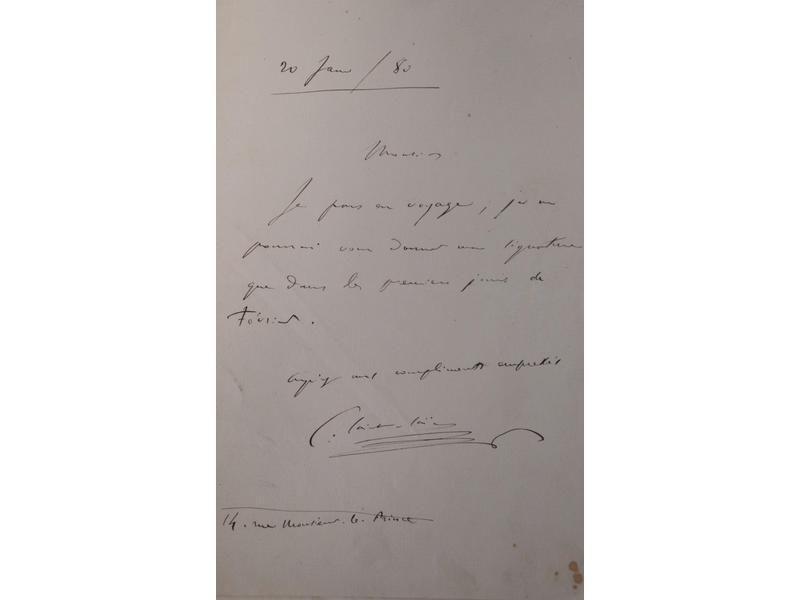 20 Janv / 80
Monsieur
Je pars en voyage, je ne
pourrai vous donner ma signature
que dans les premiers jours de
Février.
agréez mes compliments empressés
C. Saint-Saëns
14. rue Monsieur-le-Prince